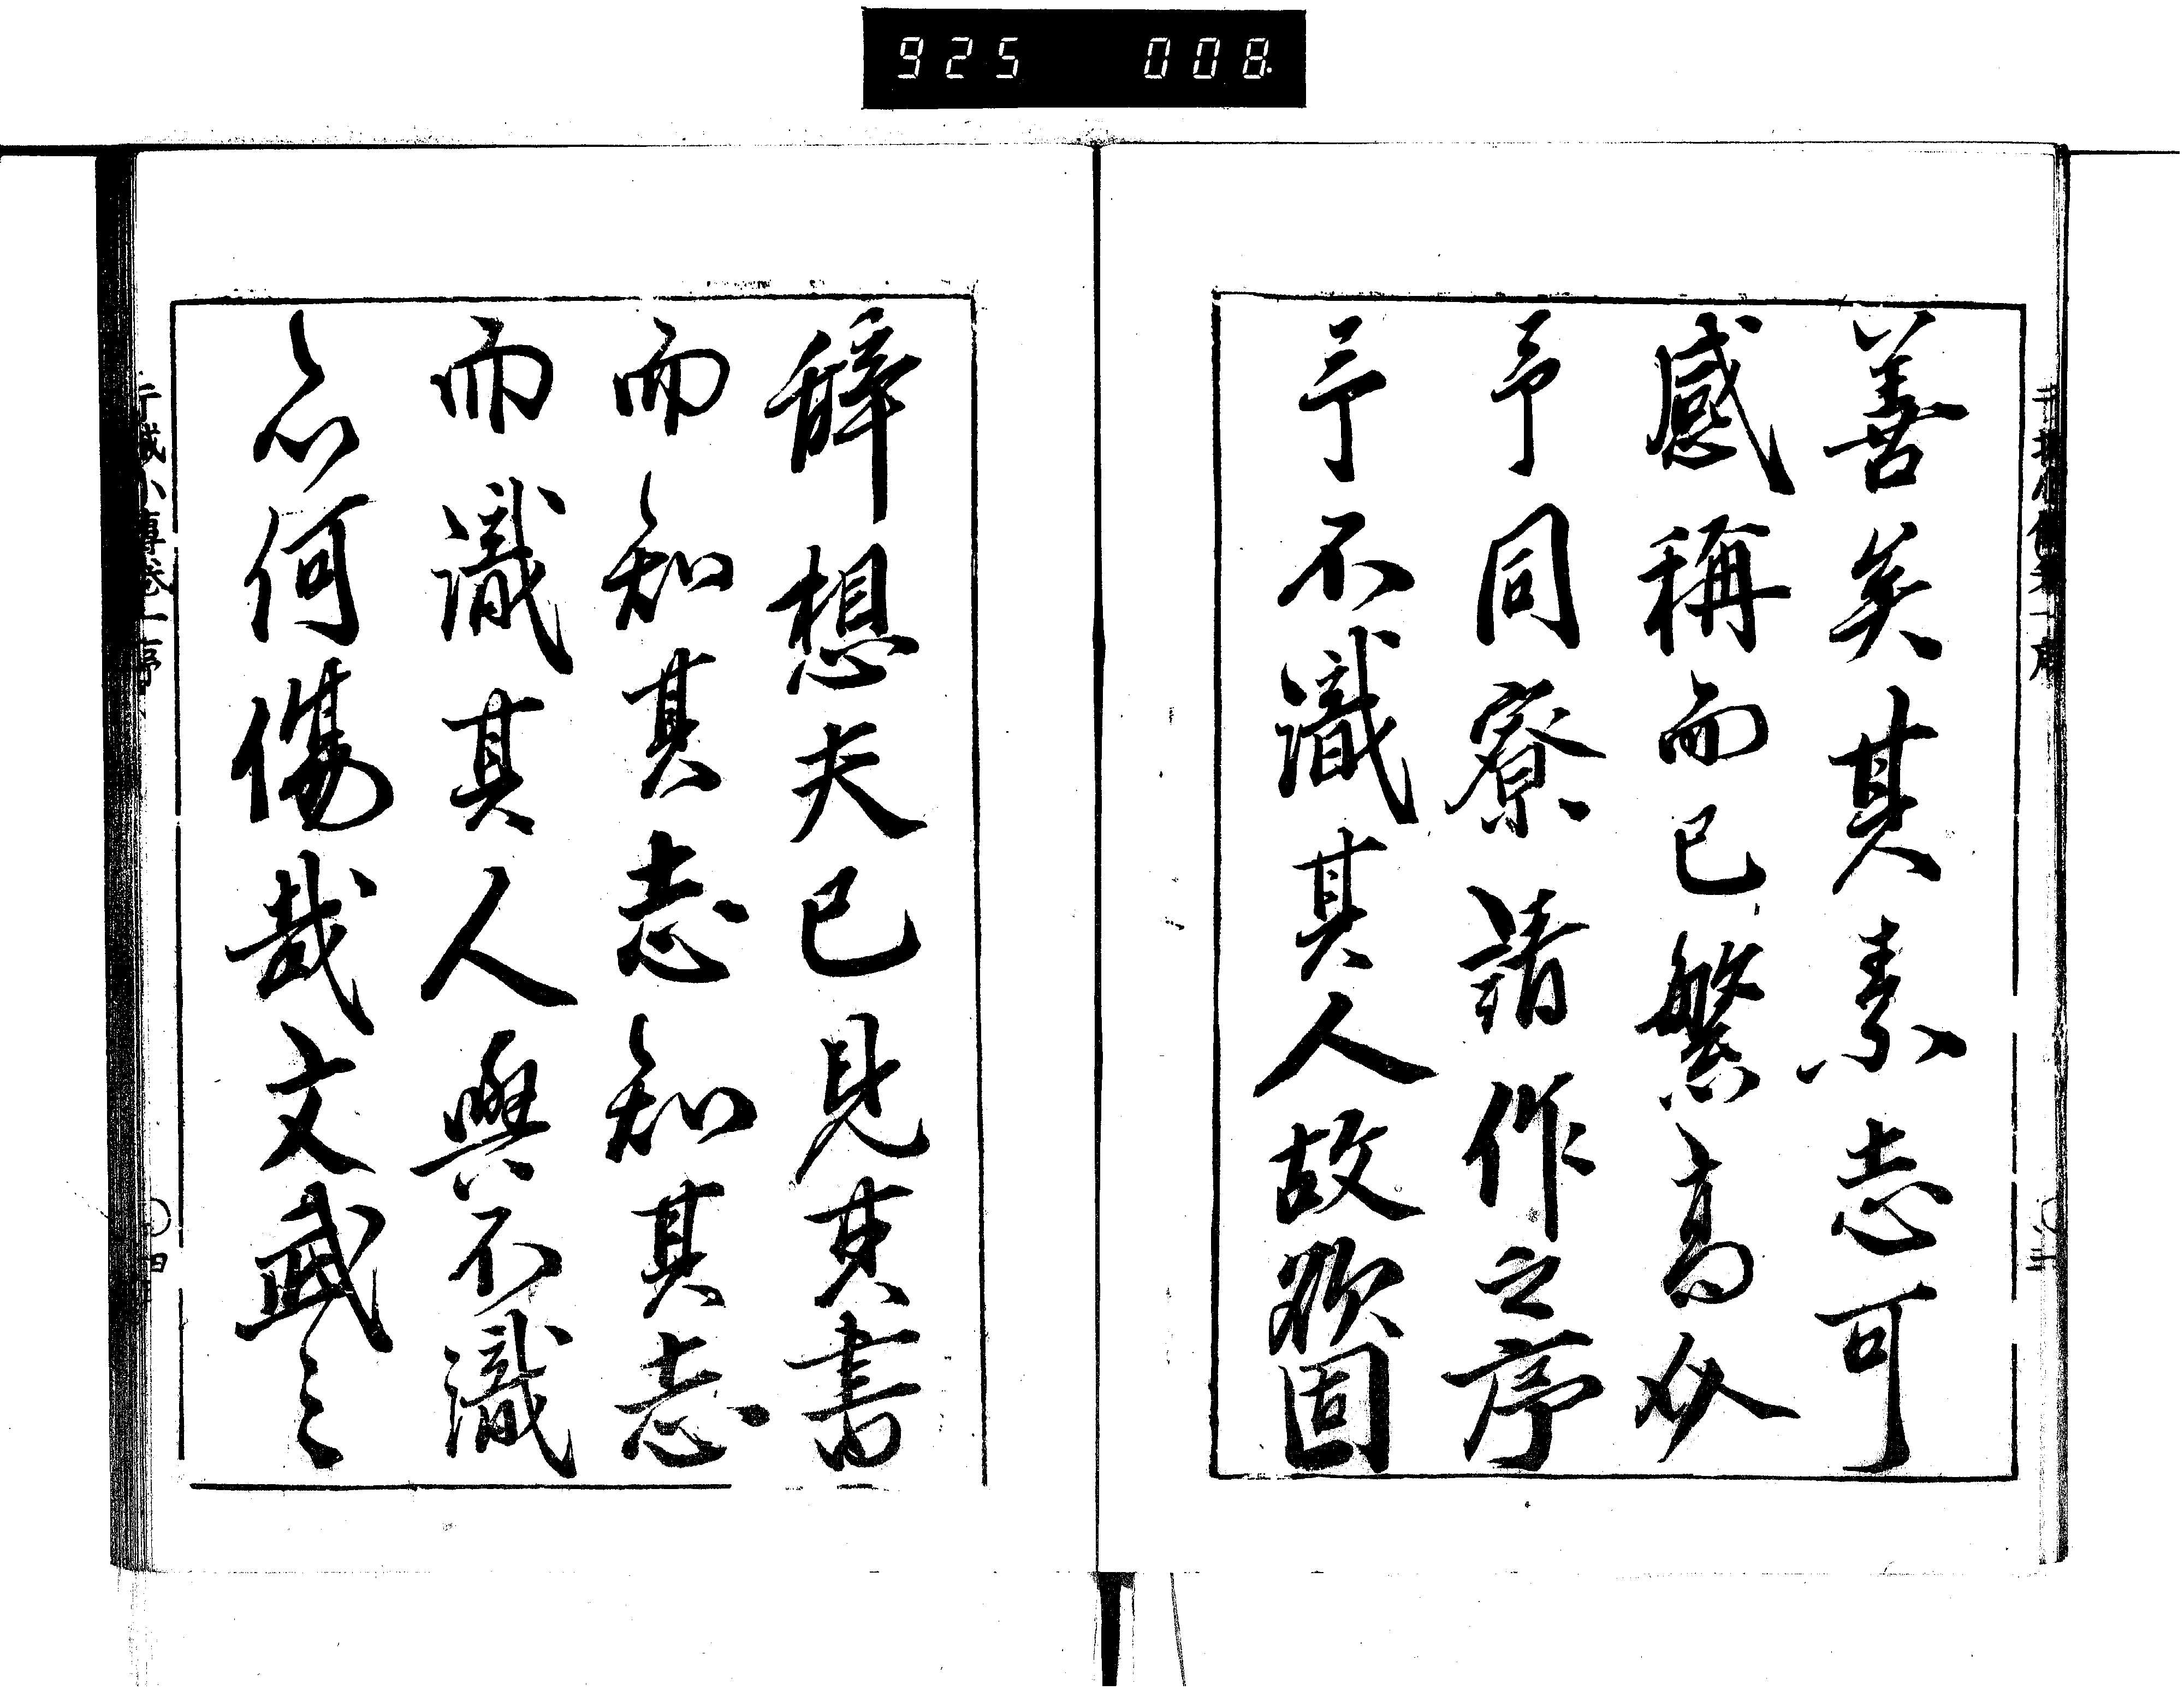 925 008
善矣其素志可
感稱而已繁高以
予同寮請作之序
予不識其人故欲固
辭想夫已見其書
而知其志知其志
而識其人與不識
亦何傷哉文武之